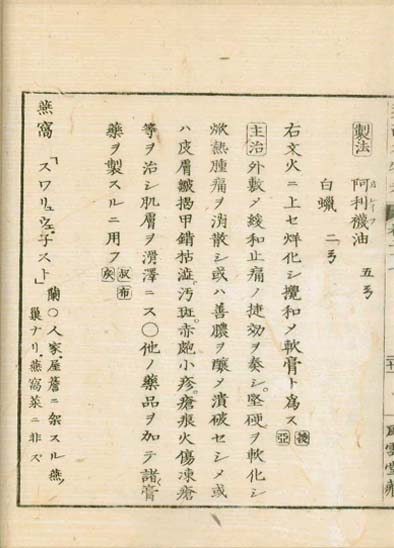 製法 阿利襪油 五ヲ
白蝋 二ヲ
右文火ニ上セ烊化シ攪和メ軟膏ト爲ス
主治 外敷メ緩和止痛ノ捷効ヲ奏シ堅硬ヲ軟化シ
焮熱腫痛ヲ消散シ或ハ善膿ヲ釀メ潰破セシメ或
ハ皮膚皴裂甲錯枯澁汚斑赤皰小疹瘡痕火傷凍瘡
等ヲ治シ肌膚ヲ滑澤ニス〇他ノ藥品ヲ加テ諸膏
藥ヲ製スルニ用フ 叔 布
燕窩 「スワリュウェ子スト」蘭〇人家屋簷ニ架スル燕
巢ナリ燕窩菜ニ非ズ